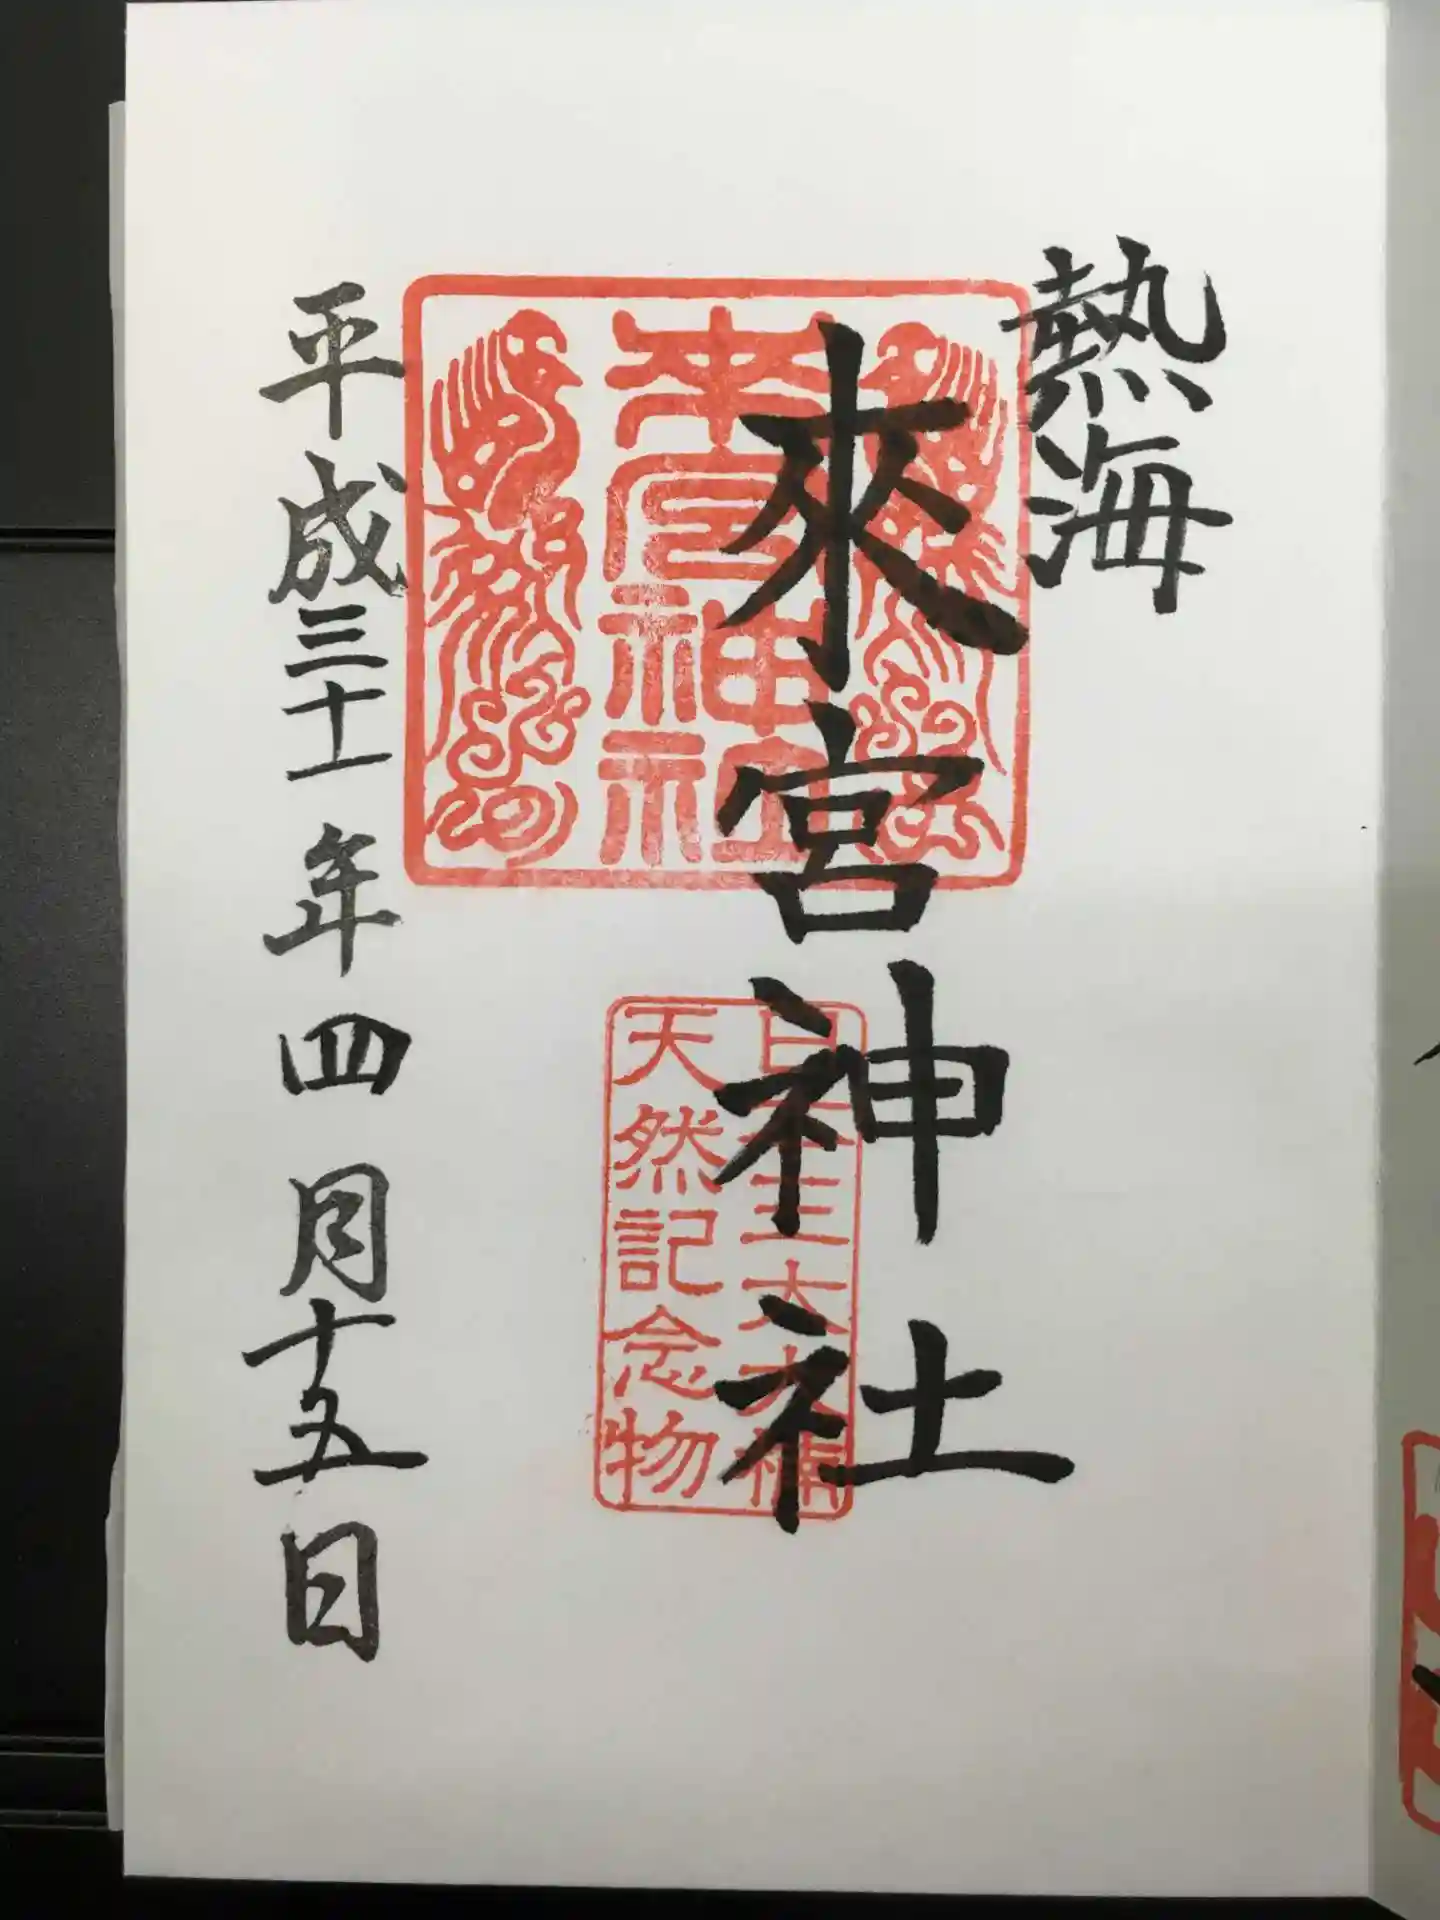 熱海
來宮神社
来宮神社
日本三大大楠
天然記念物
平成三十一年四月十五日